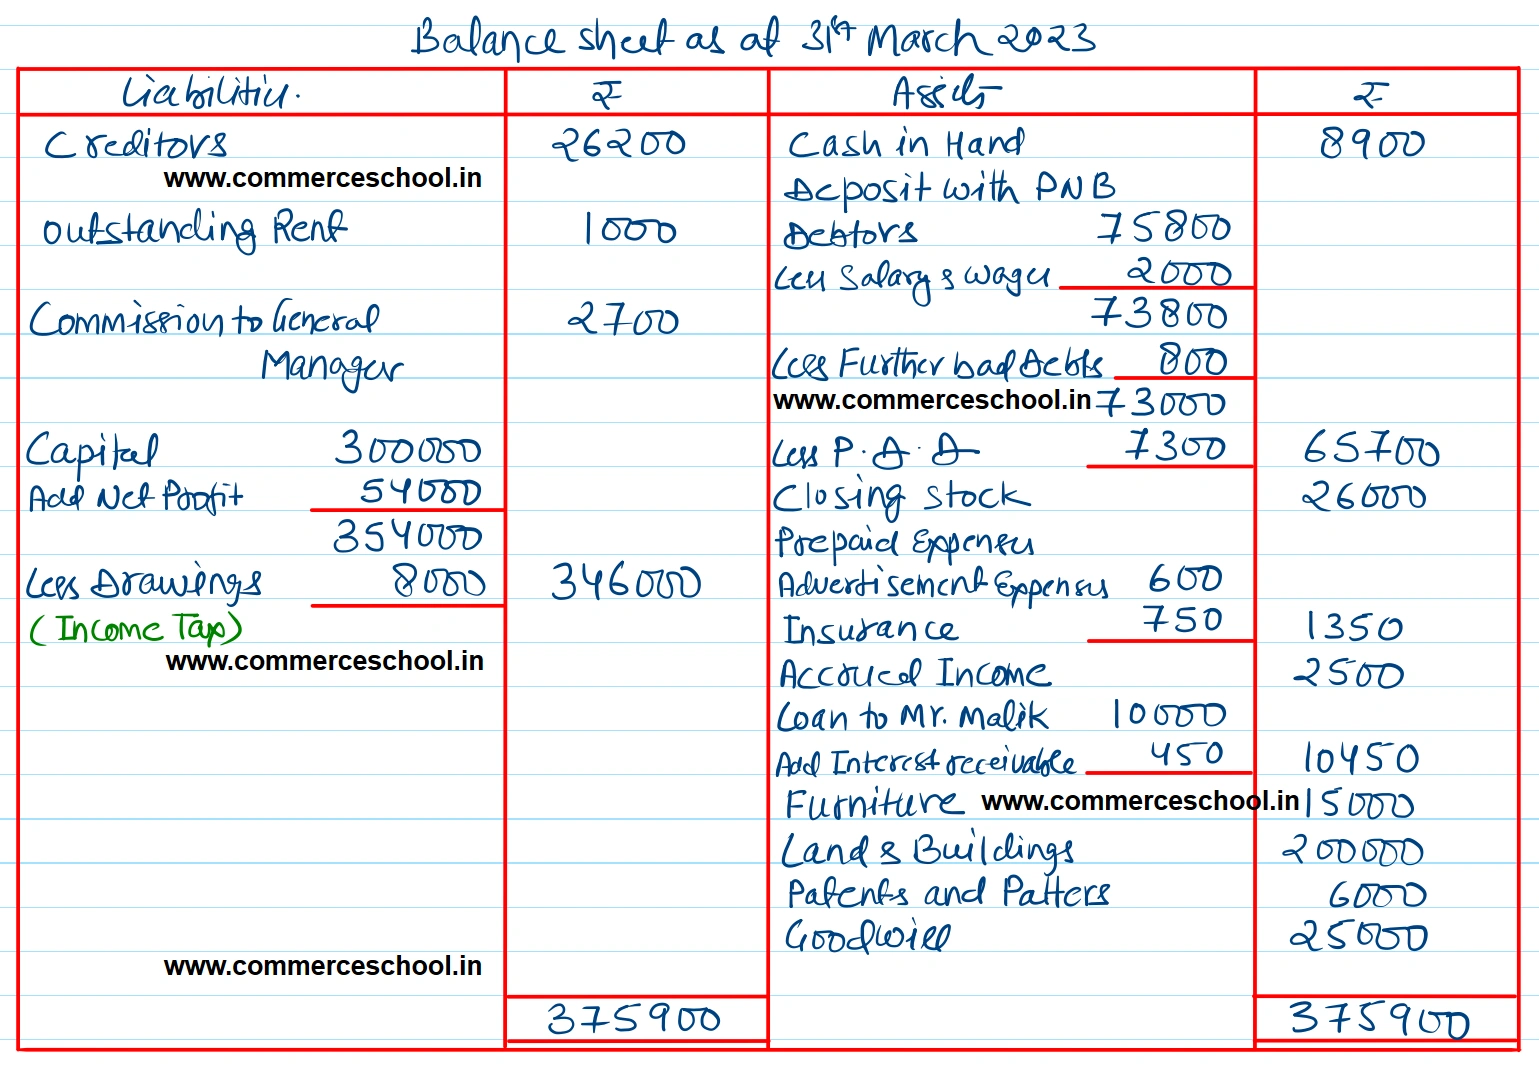 Balance sheet as at 31st March 2023
Liabilities. ₹ Assets ₹
Creditors 26200 Cash in Hand 8900
www.commerceschool.in
Deposit with PNB
Outstanding Rent 1000 Debtors 75800
Less Salary & wages 2000
Commission to General 2700 73800
Manager Less Further bad Debts 800
www.commerceschool.in 73000
Capital 300000 Less P.D.D 7300 65700
Add Net Profit 54000 Closing Stock 26000
354000 Prepaid Expenses
Less Drawings 8000 346000 Advertisement Expenses 600
(Income Tax) Insurance 750 1350
www.commerceschool.in Accrued Income 2500
Loan to Mr. Malik 10000
Add Interest receivable 450 10450
Furniture www.commerceschool.in 15000
Land & Buildings 200000
Patents and Patters 6000
Goodwill 25000
www.commerceschool.in
375900 375900